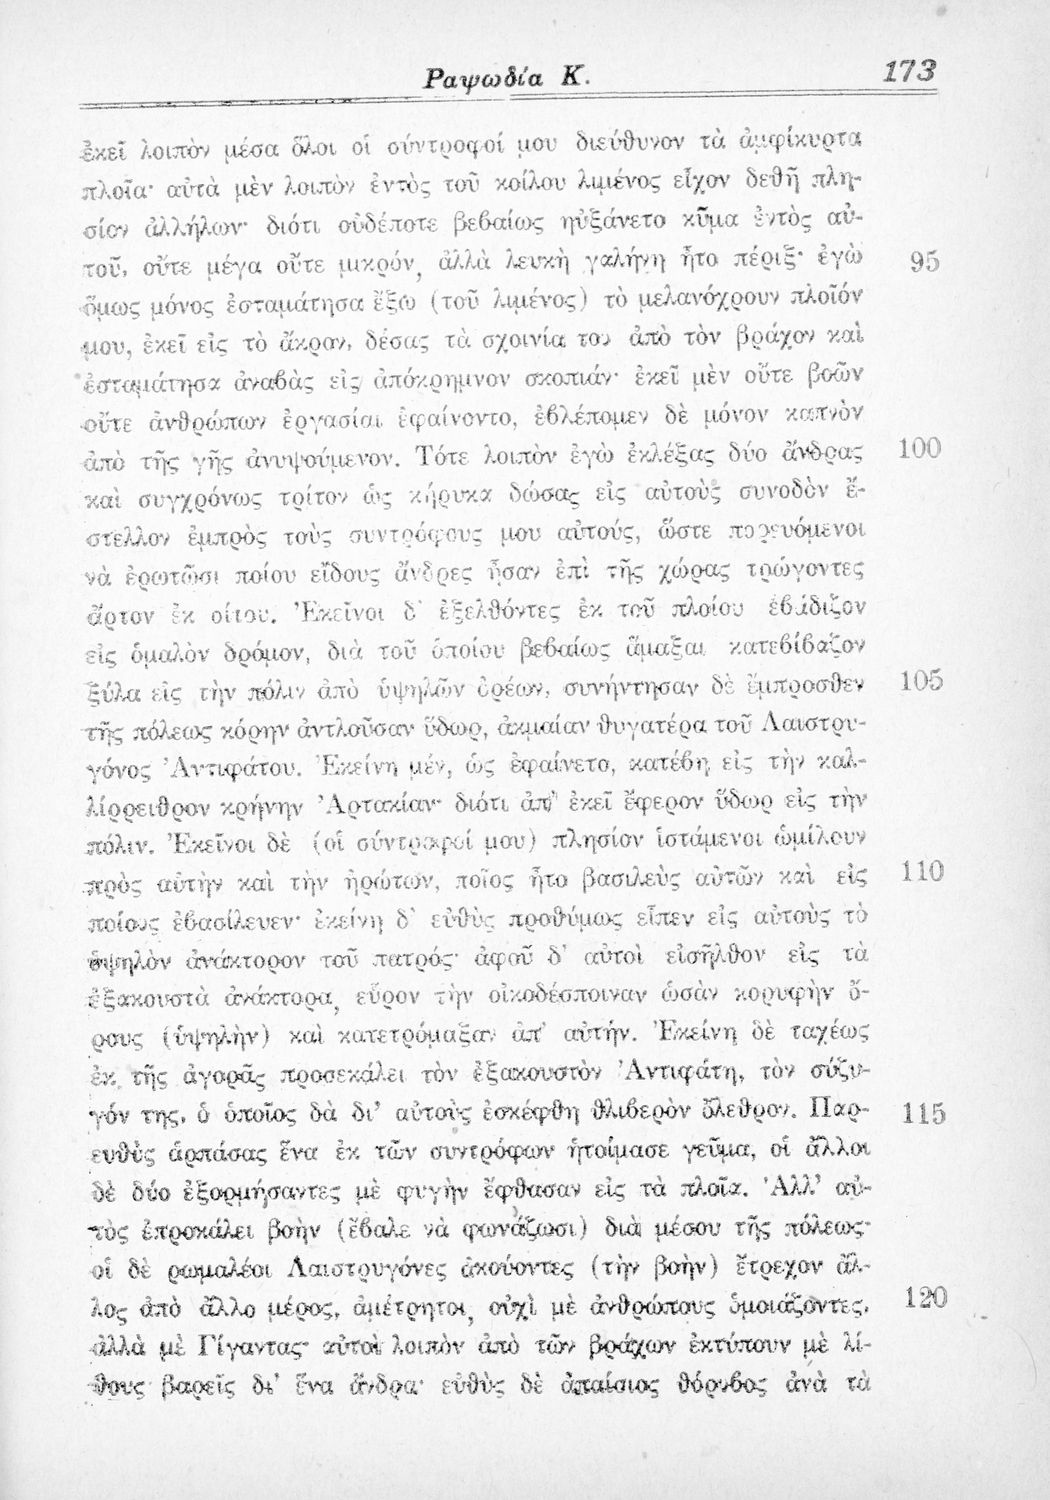 Ραψωδία Κ.
173
ἐκεῖ λοιπὸν μέσα ὅλοι οἱ σύντροφοί μου διεύθυνον τὰ ἀμφίκυρτα
πλοῖα· αὐτὰ μὲν λοιπὸν ἐντὸς τοῦ κοίλου λιμένος εἶχον δεθῆ πλη-
σίον ἀλλήλων· διότι οὐδέποτε βεβαίως ηὐξάνετο κῦμα ἐντὸς αὐ-
τοῦ, οὔτε μέγα οὔτε μικρόν, ἀλλὰ λευκὴ γαλήνη ἦτο πέριξ· ἐγὼ
95
ὅμως μόνος ἐσταμάτησα ἔξω (τοῦ λιμένος) τὸ μελανόχρουν πλοῖόν
μου, ἐκεῖ εἰς τὸ ἄκρον, δέσας τὰ σχοινία του ἀπὸ τὸν βράχον καὶ
ἐσταμάτησα ἀναβὰς εἰς ἀπόκρημνον σκοπιάν· ἐκεῖ μὲν οὔτε βοῶν
οὔτε ἀνθρώπων ἐργασίαι ἐφαίνοντο, ἐβλέπομεν δὲ μόνον καπνὸν
ἀπὸ τῆς γῆς ἀνυψούμενον. Τότε λοιπὸν ἐγὼ ἐκλέξας δύο ἄνδρας
100
καὶ συγχρόνως τρίτον ὡς κήρυκα δώσας εἰς αὐτοὺς συνοδὸν ἔ-
στελλον ἐμπρὸς τοὺς συντρόφους μου αὐτούς, ὥστε πορευόμενοι
νὰ ἐρωτῶσι ποίου εἴδους ἄνδρες ἦσαν ἐπὶ τῆς χώρας τρώγοντες
ἄρτον ἐκ σίτου. Ἐκεῖνοι δ' ἐξελθόντες ἐκ τοῦ πλοίου ἐβάδιζον
εἰς ὁμαλὸν δρόμον, διὰ τοῦ ὁποίου βεβαίως ἅμαξαι κατεβίβαζον
ξύλα εἰς τὴν πόλιν ἀπὸ ὑψηλῶν ὀρέων, συνήντησαν δὲ ἔμπροσθεν
105
τῆς πόλεως κόρην ἀντλοῦσαν ὕδωρ, ἀκμαίαν θυγατέρα τοῦ Λαιστρυ-
γόνος Ἀντιφάτου. Ἐκείνη μέν, ὡς ἐφαίνετο, κατέβη εἰς τὴν καλ-
λίρρειθρον κρήνην Ἀρτακίαν· διότι ἀπ' ἐκεῖ ἔφερον ὕδωρ εἰς τὴν
πόλιν. Ἐκεῖνοι δὲ (οἱ σύντροφοί μου) πλησίον ἱστάμενοι ὡμίλουν
πρὸς αὐτὴν καὶ τὴν ἠρώτων, ποῖος ἦτο βασιλεὺς αὐτῶν καὶ εἰς
110
ποίους ἐβασίλευεν· ἐκείνη δ' εὐθὺς προθύμως εἶπεν εἰς αὐτοὺς τὸ
ὑψηλὸν ἀνάκτορον τοῦ πατρός· ἀφοῦ δ' αὐτοὶ εἰσῆλθον εἰς τὰ
ἐξακουστὰ ἀνάκτορα, εὗρον τὴν οἰκοδέσποιναν ὡσὰν κορυφὴν ὄ-
ρους (ὑψηλὴν) καὶ κατετρόμαξαν ἀπ' αὐτήν. Ἐκείνη δὲ ταχέως
ἐκ τῆς ἀγορᾶς προσεκάλει τὸν ἐξακουστὸν Ἀντιφάτη, τὸν σύζυ-
γόν της, ὁ ὁποῖος δὰ δι' αὐτοὺς ἐσκέφθη θλιβερὸν ὄλεθρον. Παρ-
115
ευθὺς ἁρπάσας ἕνα ἐκ τῶν συντρόφων ἡτοίμασε γεῦμα, οἱ ἄλλοι
δὲ δύο ἐξορμήσαντες μὲ φυγὴν ἔφθασαν εἰς τὰ πλοῖα. Ἀλλ' αὐ-
τὸς ἐπροκάλει βοὴν (ἔβαλε νὰ φωνάζωσι) διὰ μέσου τῆς πόλεως·
οἱ δὲ ρωμαλέοι Λαιστρυγόνες ἀκούοντες (τὴν βοὴν) ἔτρεχον ἄλ-
λος ἀπὸ ἄλλο μέρος, ἀμέτρητοι, οὐχὶ μὲ ἀνθρώπους ὁμοιάζοντες,
120
ἀλλὰ μὲ Γίγαντας· αὐτοὶ λοιπὸν ἀπὸ τῶν βράχων ἐκτύπουν μὲ λί-
θους βαρεῖς δι' ἕνα ἄνδρα· εὐθὺς δὲ ἀπαίσιος θόρυβος ἀνὰ τὰ